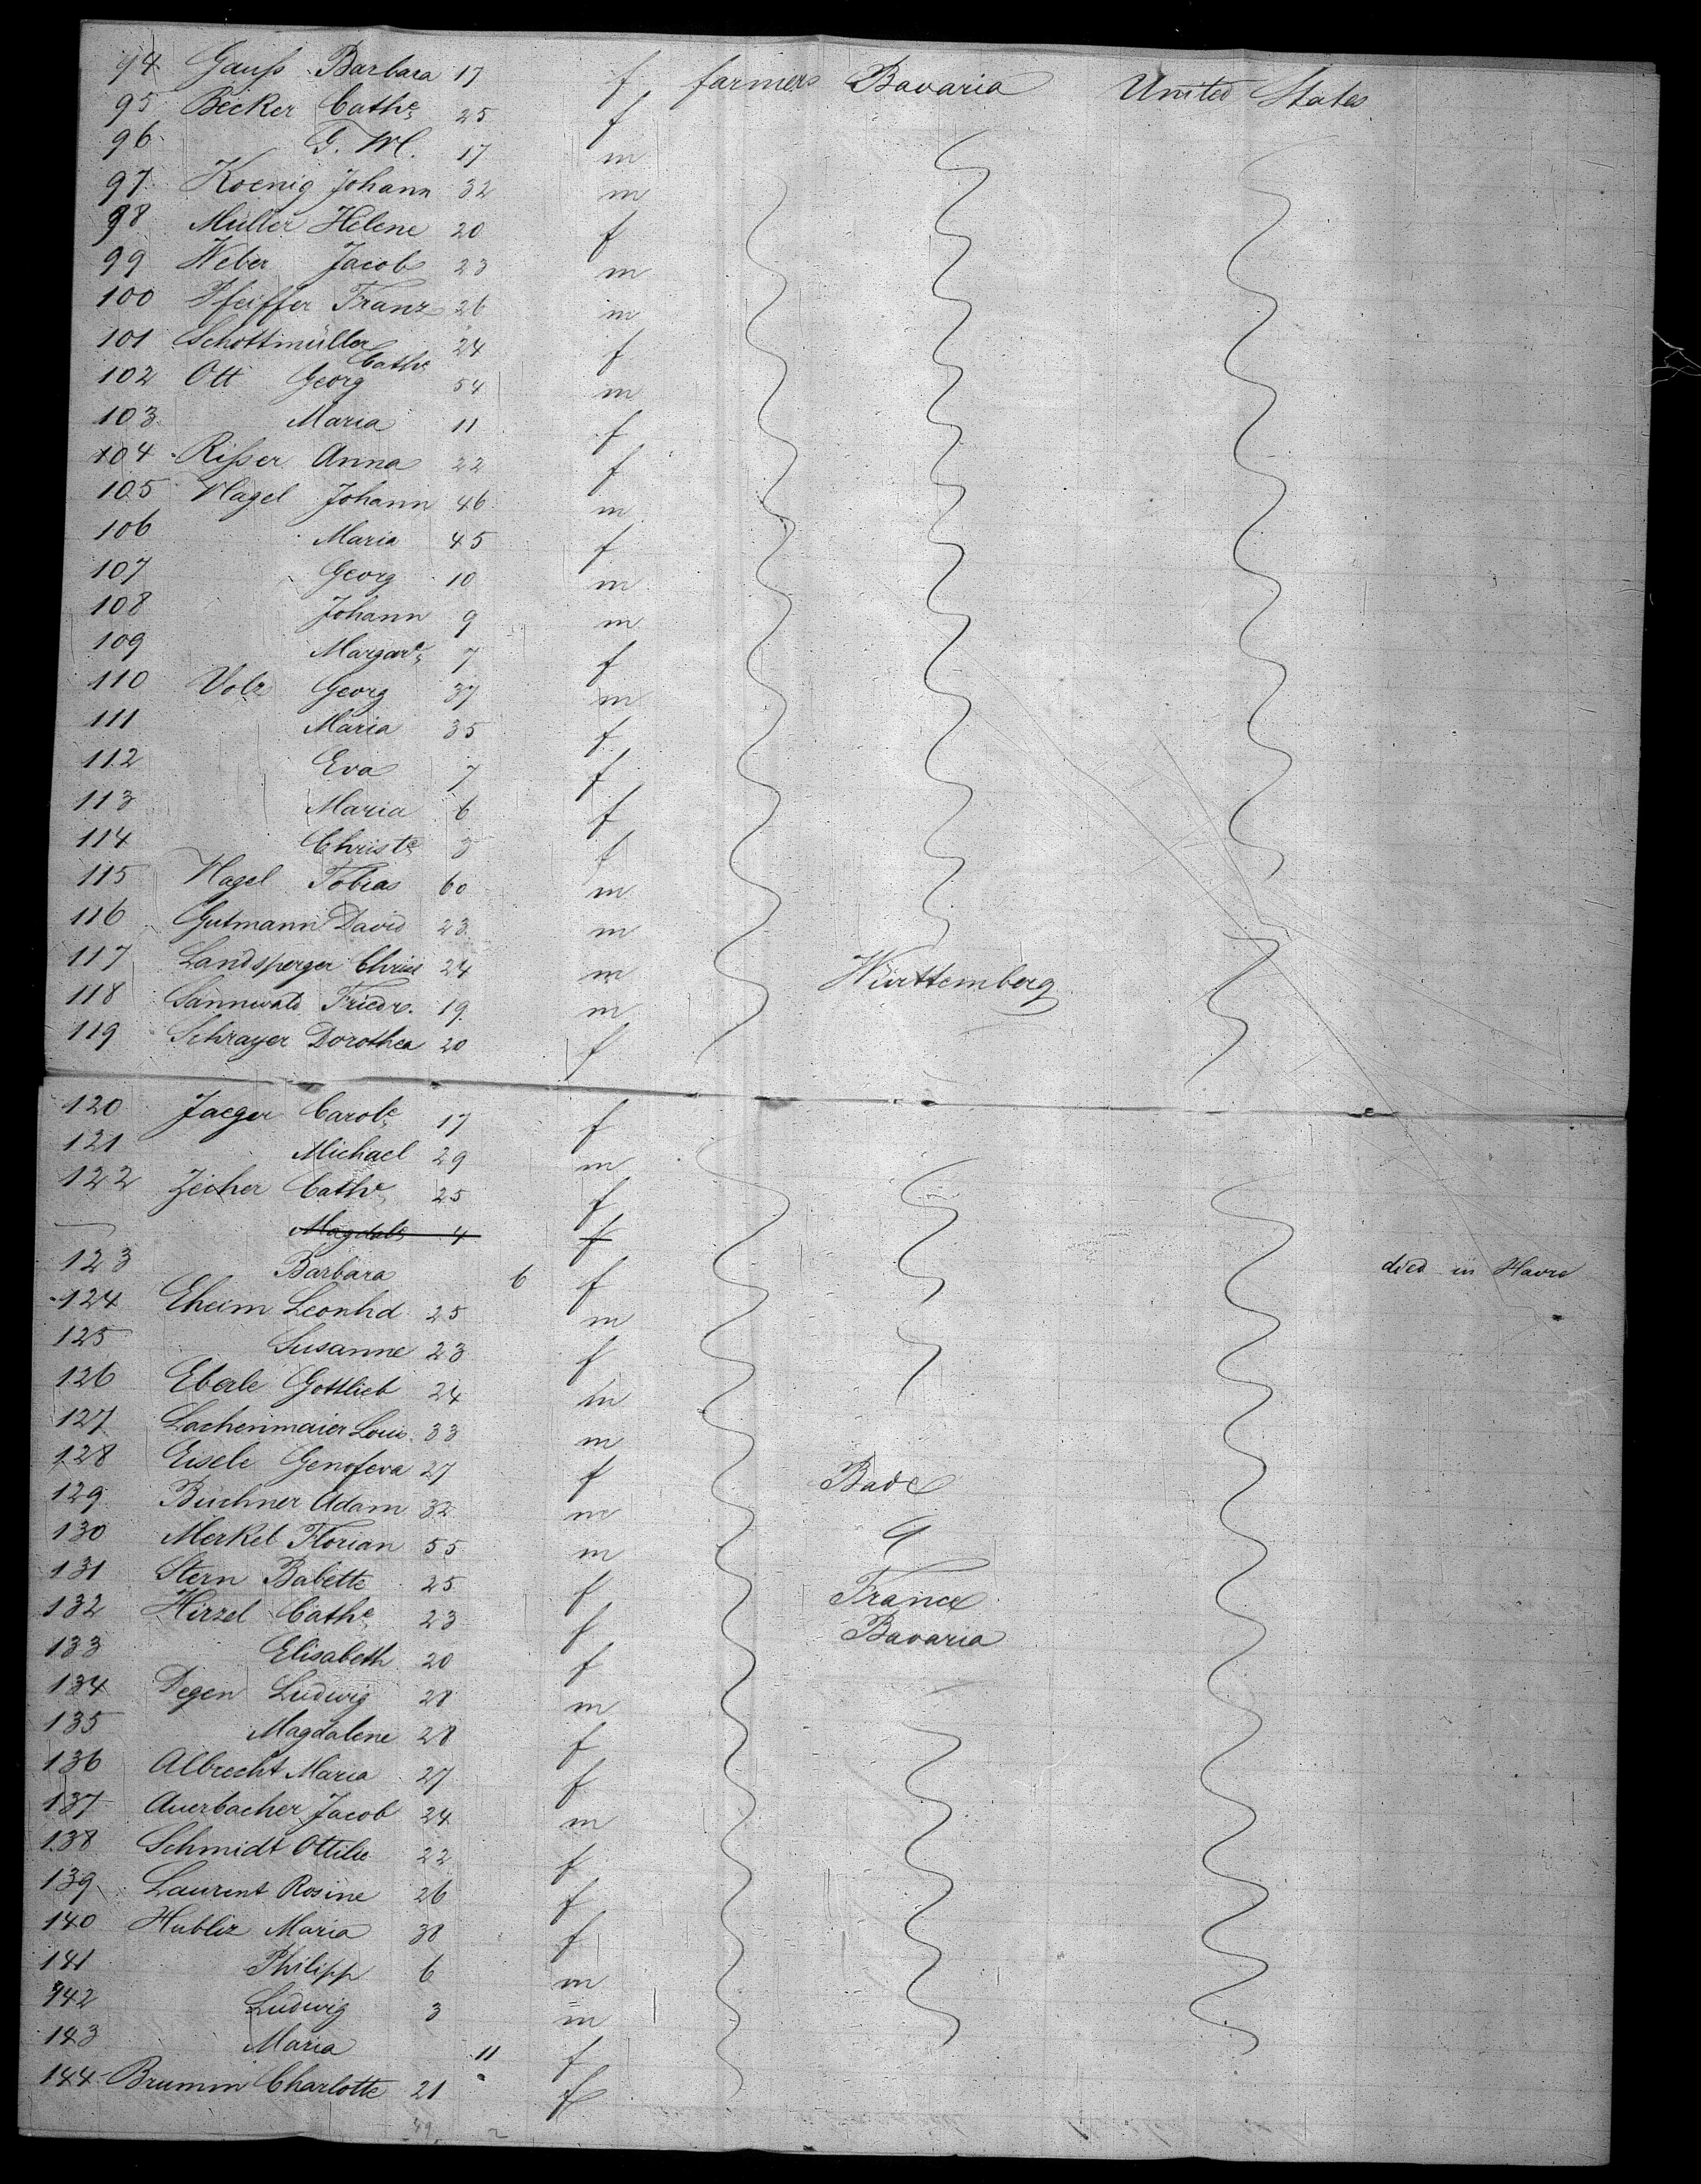 94 Gauß Barbara 17 f farmers Bavaria United States
95 Becker Cathe 25 f
96 G. W. 17 m
97 Koenig Johann 32 m
98 Müller Helene 20 f
99 Weber Jacob 23 m
100 Pfeiffer Franz 26 m
101 Schottmüller Cathe 24 f
102 Ott Georg 54 m
103 Maria 11 f
104 Rißer Anna 22 f
105 Nagel Johann 46 m
106 Maria 45 f
107 Georg 10 m
108 Johann 9 m
109 Margare 7 f
110 Volz Georg 37 m
111 Maria 35 f
112 Eva 7 f
113 Maria 6 f
114 Christe 3 f
115 Nagel Tobias 60 m
116 Gutmann David 23 m
117 Landsperger Christ 24 m Württemberg
118 Sannwald Friedr. 19 m
119 Schrayer Dorothea 20 f
120 Jaeger Carole 17 f
121 Michael 29 m
122 Zecher Cathe 25 f
Magdale 4 f
123 Barbara 6 f died in Havre
124 Eheim Leonhd 25 m
125 Susanne 23 f
126 Eberle Gottlieb 24 m
127 Lachenmaier Louis 33 m
128 Eisele Genofeva 27 f Bade
129 Büchner Adam 32 m
130 Merkel Florian 55 m
131 Stern Babette 25 f France
132 Hirzel Cathe 23 f Bavaria
133 Elisabeth 20 f
134 Degen Ludwig 28 m
135 Magdalene 28 f
136 Albrecht Maria 27 f
137 Auerbacher Jacob 24 m
138 Schmidt Ottilie 22 f
139 Laurent Rosine 26 f
140 Hubliz Maria 38 f
141 Philipp 6 m
142 Ludwig 3 m
143 Maria 11 f
144 Brumm Charlotte 21 f